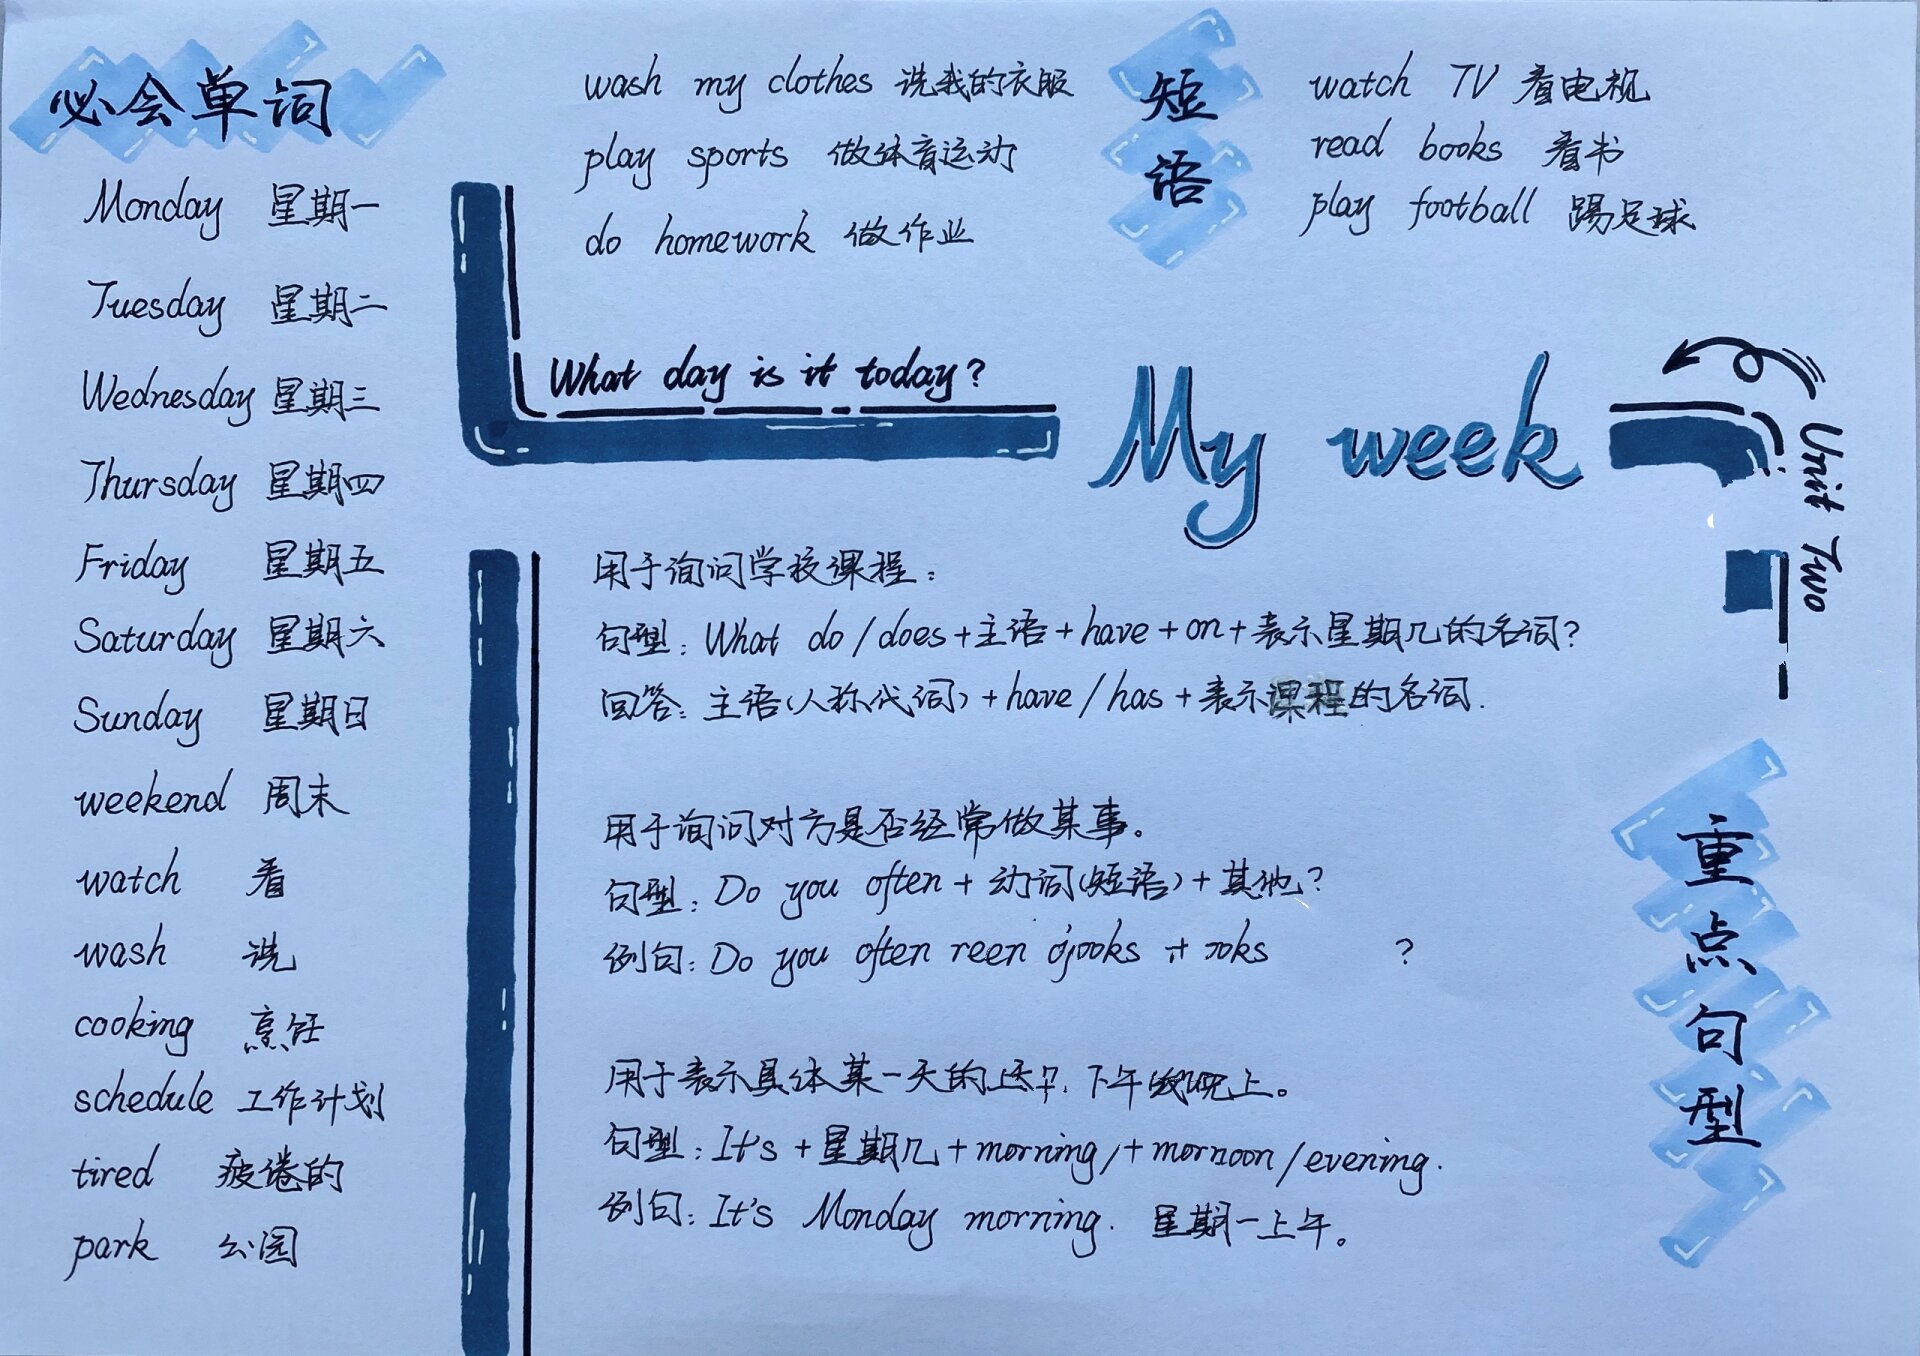 必会单词
Monday 星期一
Tuesday 星期二
Wednesday 星期三
Thursday 星期四
Friday 星期五
Saturday 星期六
Sunday 星期日
weekend 周末
watch 看
wash 洗
cooking 烹饪
schedule 工作计划
tired 疲倦的
park 公园
wash my clothes 洗我的衣服
play sports 做体育运动
do homework 做作业
短语
watch TV 看电视
read books 看书
play football 踢足球
What day is it today?
My week
Unit Two
用于询问学校课程：
句型：What do/does+主语+have+on+表示星期几的名词?
回答：主语(人称代词)+have/has+表示课程的名词.
用于询问对方是否经常做某事。
句型：Do you often+动词(短语)+其他?
例句：Do you often ?
用于表示具体某一天的 下午 晚上。
句型：It's+星期几+morning/+mornoon/evening.
例句：It's Monday morning. 星期一上午。
重点句型